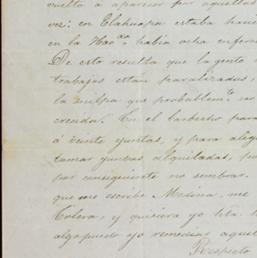 vuelto a aparecer por aquellas
vez: en Elahuapa estaba haci
en la Hacda. habia ocho enferm
De esto resulta que la gente
trabajos están paralizados,
la milpa que probablemte. se
creciendo. En el barbecho para
á veinte yuntas, y para aleg
tomar yuntas alquiladas, pue
por consiguiente no sembrar.
que me escribe Medina, me
Colera, y quisiera yo hta.
algo puedo yo remediar aquel
Respecto